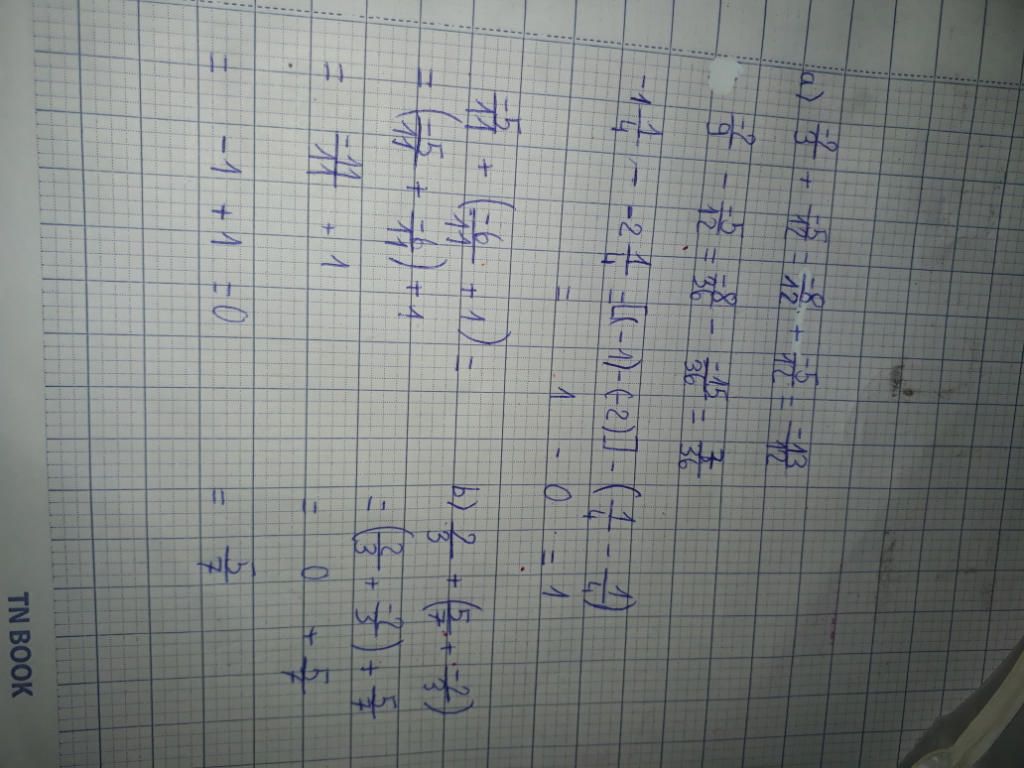 a) -2/3 + -5/12 = -8/12 + -5/12 = -13/12
-2/9 - -5/12 = -8/36 - -15/36 = 7/36
-1 1/4 - -2 1/4 = [(-1)-(-2)] - (1/4 - 1/4)
= 1 - 0 = 1
-5/11 + (-6/11 + 1) =
= (-5/11 + -6/11) + 1
= -11/11 + 1
= -1 + 1 = 0
b) 2/3 + (5/7 + -2/3)
= (2/3 + -2/3) + 5/7
= 0 + 5/7
= 5/7
TN BOOK